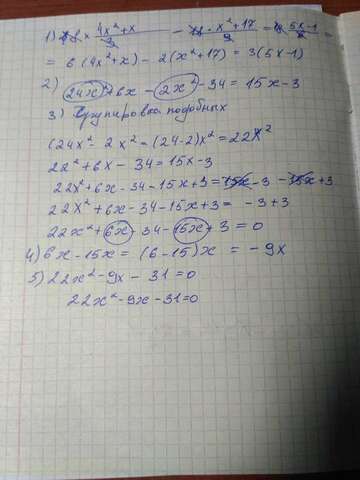 1) 6 × 4x²+x/3 - x²+17/9 = 5x-1/2 =
= 6(4x²+x) - 2(x²+17) = 3(5x-1)
2) 24x² + 6x - 2x² - 34 = 15x - 3
3) Группировка подобных
(24x² - 2x² = (24-2)x² = 22x²
22² + 6x - 34 = 15x - 3
22x² + 6x - 34 - 15x + 3 = 15x - 3 - 15x + 3
22x² + 6x - 34 - 15x + 3 = -3 + 3
22x² + 6x - 34 - 15x + 3 = 0
4) 6x - 15x = (6-15)x = -9x
5) 22x² - 9x - 31 = 0
22x² - 9x - 31 = 0